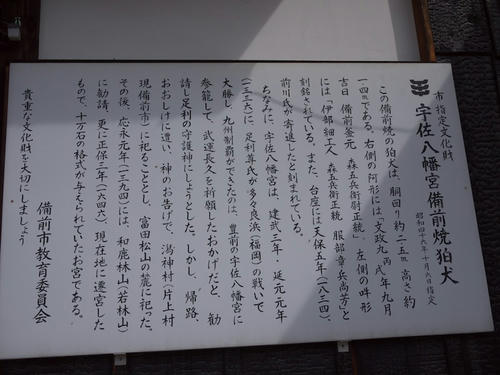 市指定文化財
宇佐八幡宮備前焼狛犬
昭和四十六年十月六日指定
この備前焼の狛犬は、胴回り約一・二五m、高さ約
一・四mである。右側の阿形には「文政九丙戌年九月
吉日 備前釜元 森五兵衛尉正統」、左側の吽形
には「伊部細工人 森五兵衛正統 服部章兵尚芳」と
刻銘されている。また、台座には天保五年(一八三四)、
前川氏が寄進したと刻まれている。
ちなみに、宇佐八幡宮は、建武三年・延元元年
(一三三六)に、足利尊氏が多々良浜(福岡)の戦いで
大勝し、九州制覇ができたのは、豊前の宇佐八幡宮に
参籠して、武運長久を祈願したおかげだと、勧
請し足利の守護神にしようとした。しかし、帰路、
おおしけに遭い、神のお告げで、湯神村(片上村
現備前市)に祀ることとし、富田松山の麓に祀った。
その後、応永元年(一三九四)には、和鹿林山(若林山)
に勧請、更に正保三年(一六四六)、現在地に遷宮した
もので、十万石の格式が与えられていたお宮である。
貴重な文化財を大切にしましょう
備前市教育委員会